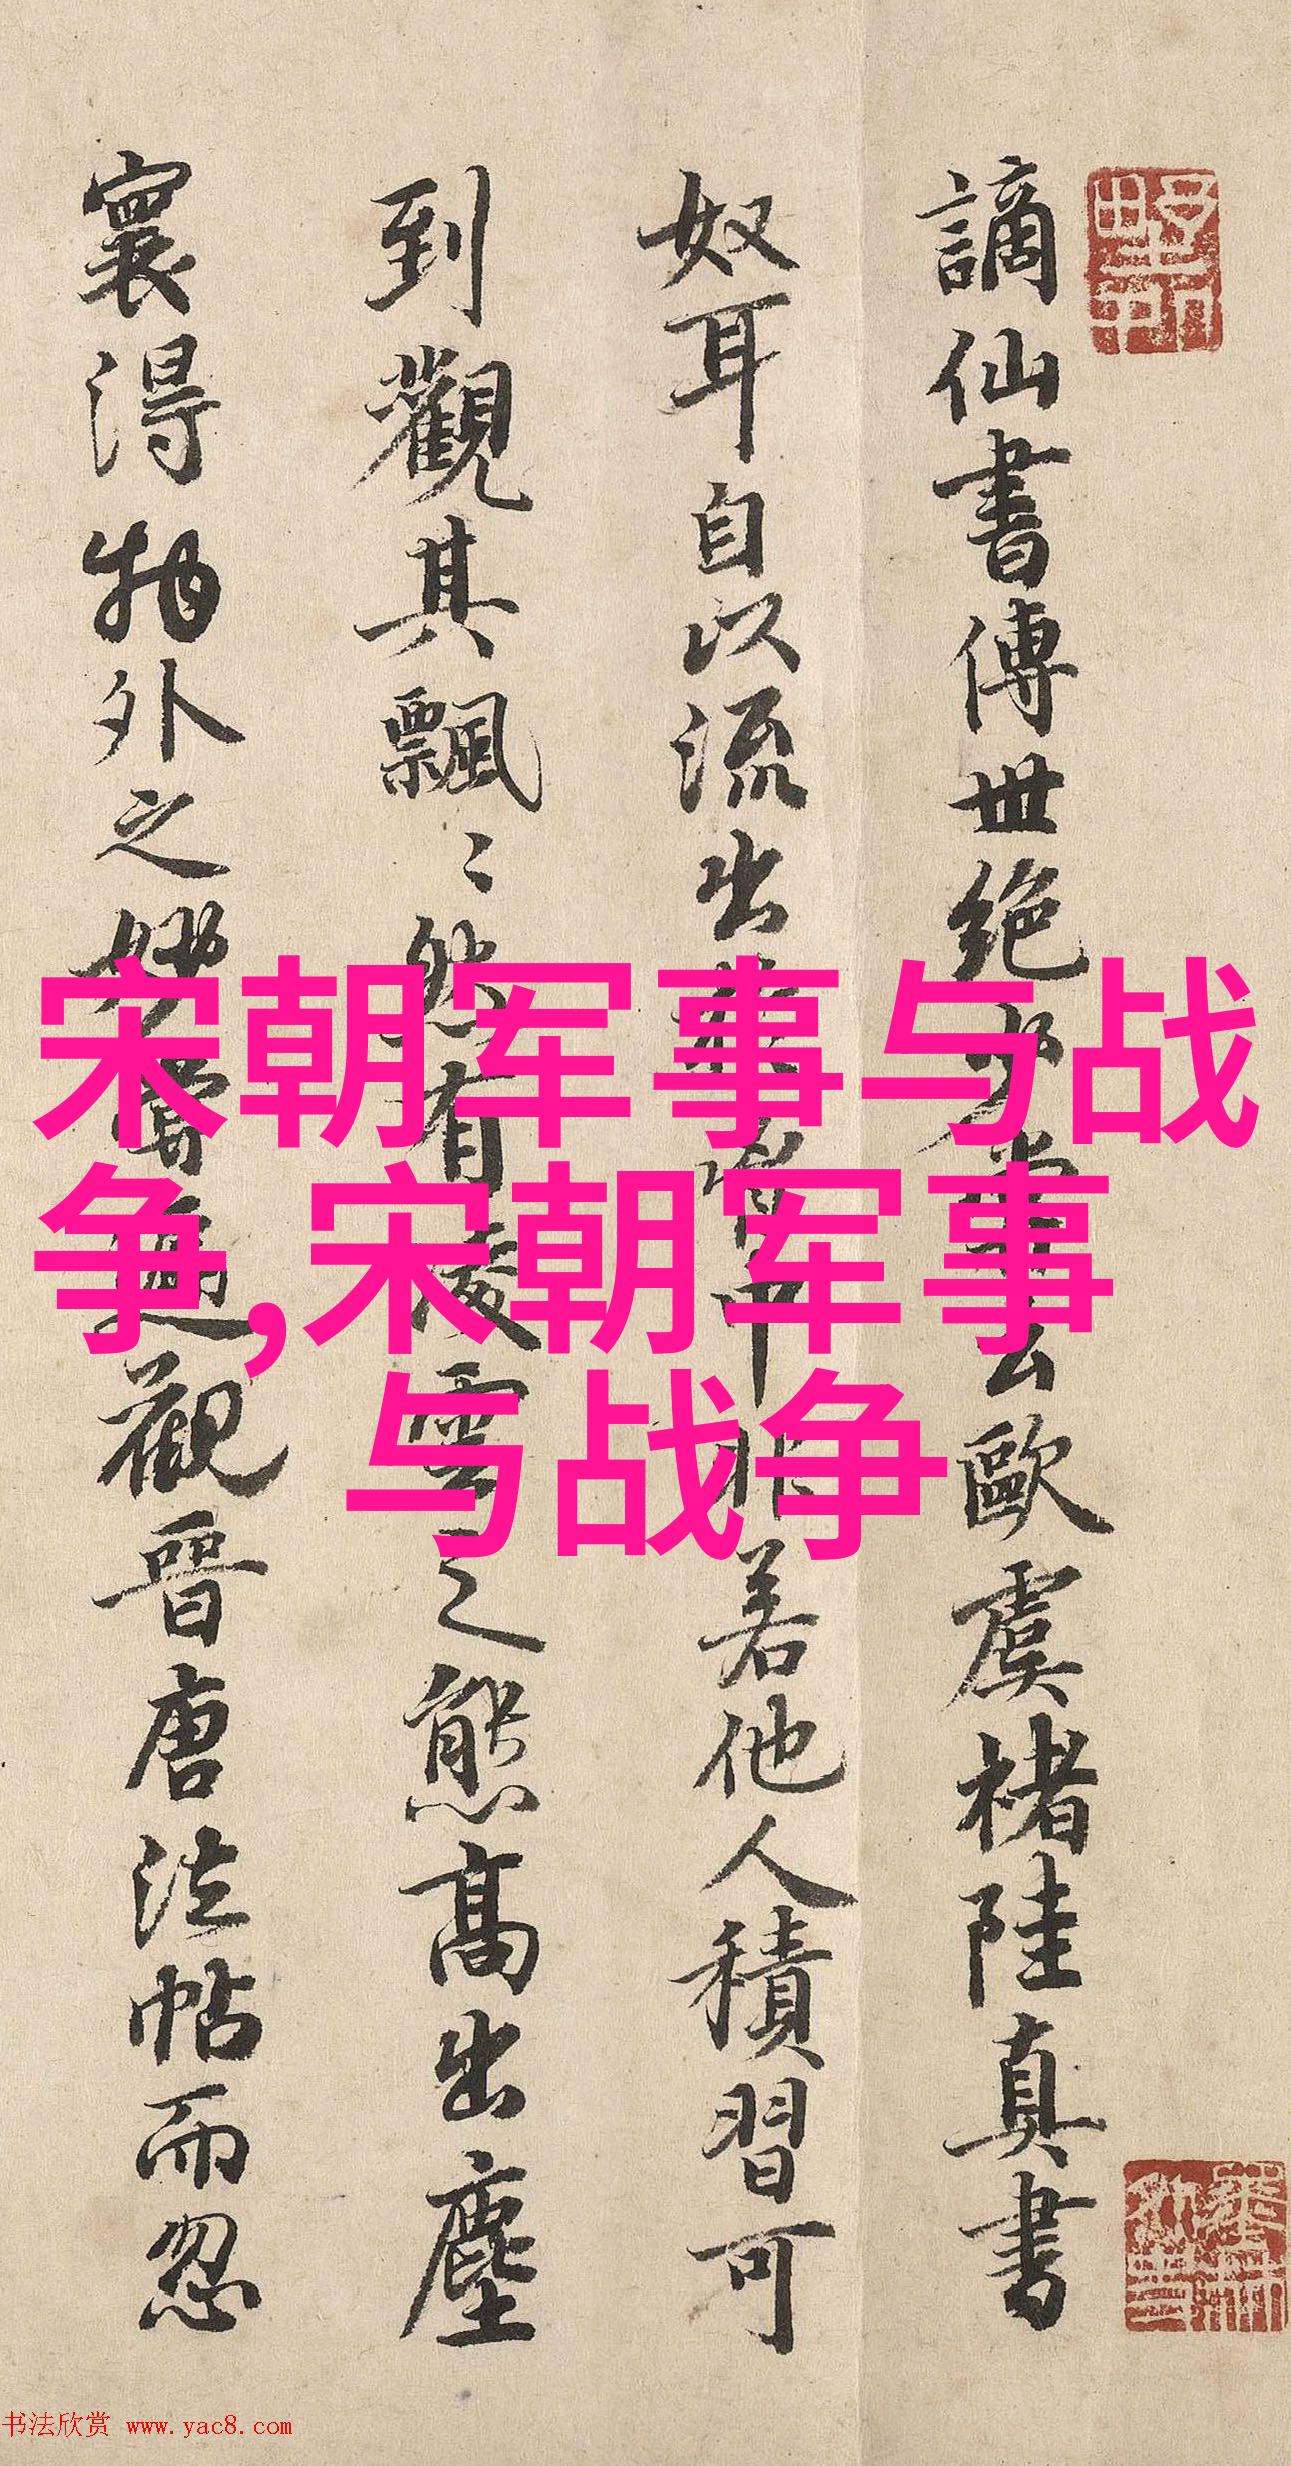 謫仙書傳世絕少嘗云歐虞褚陸真書
奴耳自以流出於胸中非若他人積習可
到觀其飄〻然有凌雲之態高出塵
寰得物外之妙嘗遍觀晉唐法帖而忽
宋朝军事与战
争,宋朝军事
与战争
书法欣赏 www.yac8.com